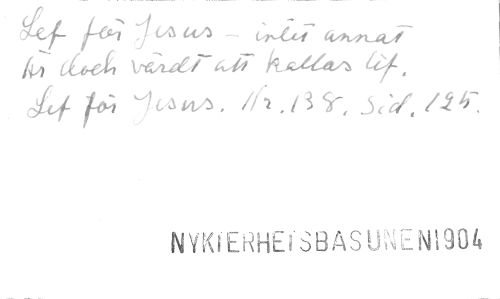 Lef för Jesus – intet annat
Är doch värdt att kallas lif.
Lef för Jesus. Nr. 138. Sid. 125.
NYKTERHETSBASUNEN 1904